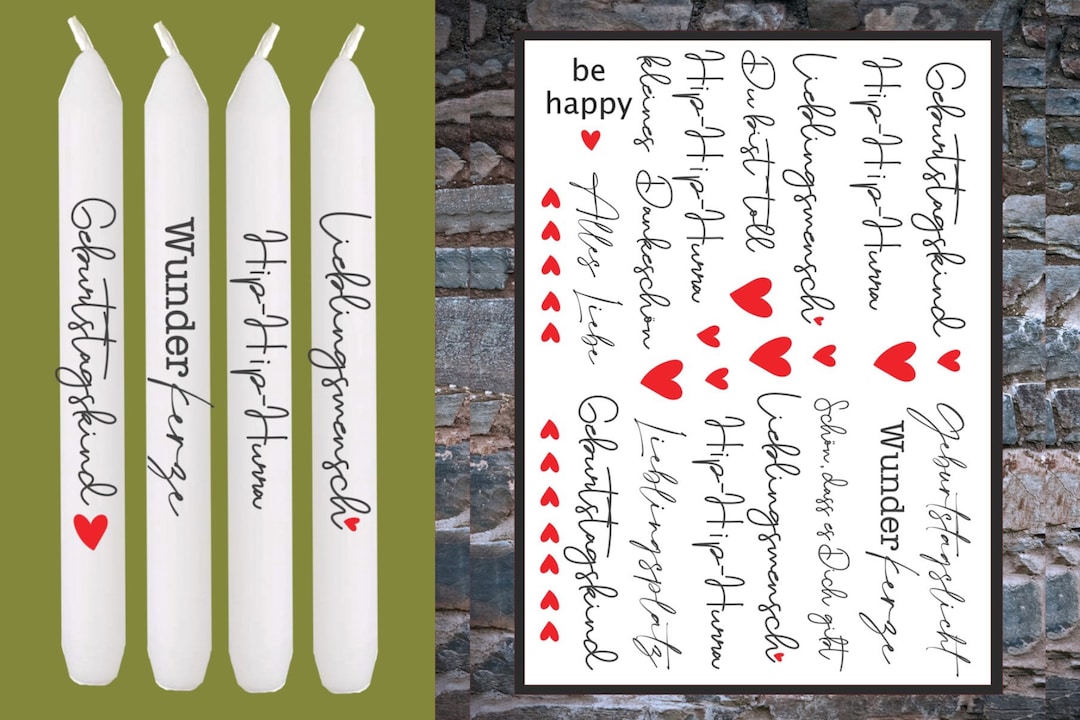 Geburtstagskind
Wunderkerze
Hip-Hip-Hurra
Lieblingsmensch
be
happy
Alles Liebe
kleines Dankeschön
Hip-Hip-Hurra
Du bist toll
Lieblingsmensch
Hip-Hip-Hurra
Geburtstagskind
Geburtstagskind
Lieblingsplatz
Hip-Hip-Hurra
Lieblingsmensch
Schön, dass es Dich gibt
Wunderkerze
Geburtstagslicht